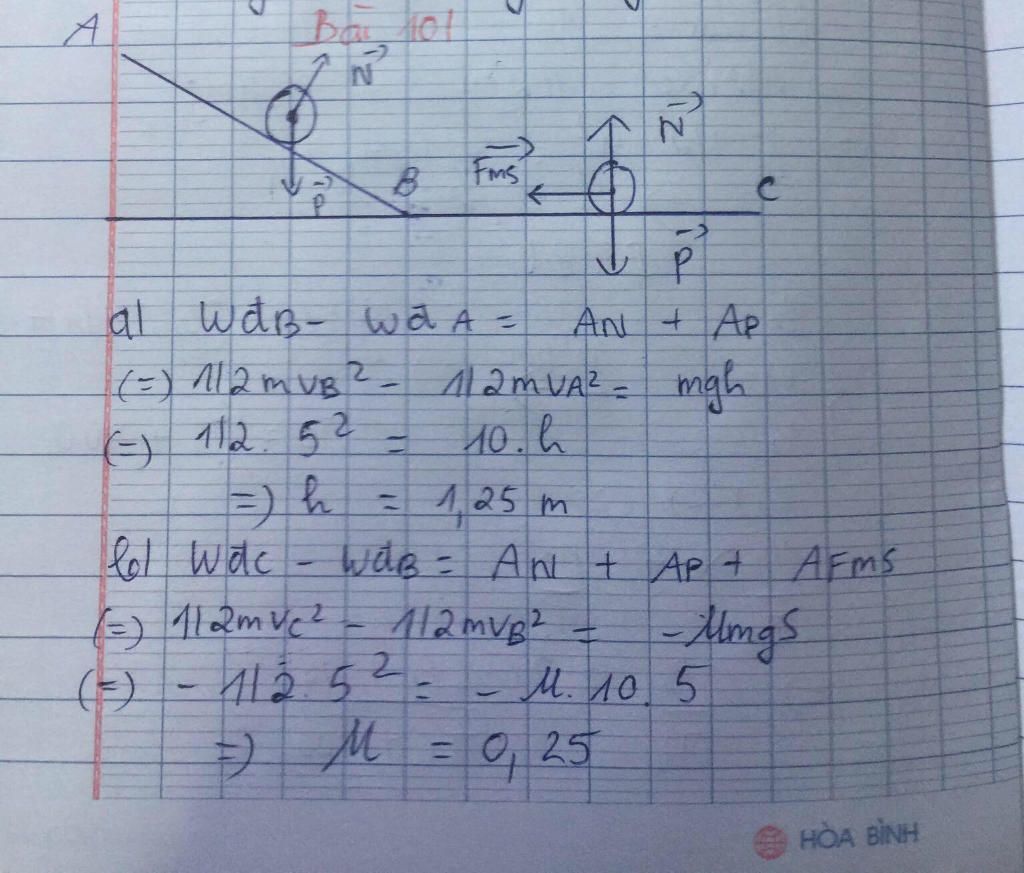 Bài 10/
A
N
N
Fms
B
C
P
P
a/ WđB - WđA = AN + AP
(=) 1/2mvB² - 1/2mvA² = mgh
(=) 1/2. 5² = 10.h
=) h = 1,25 m
b/ WđC - WđB = AN + AP + AFms
(=) 1/2mvC² - 1/2mvB² = -μmgS
(=) - 1/2.5² = - μ. 10. 5
=) μ = 0,25
HÒA BÌNH